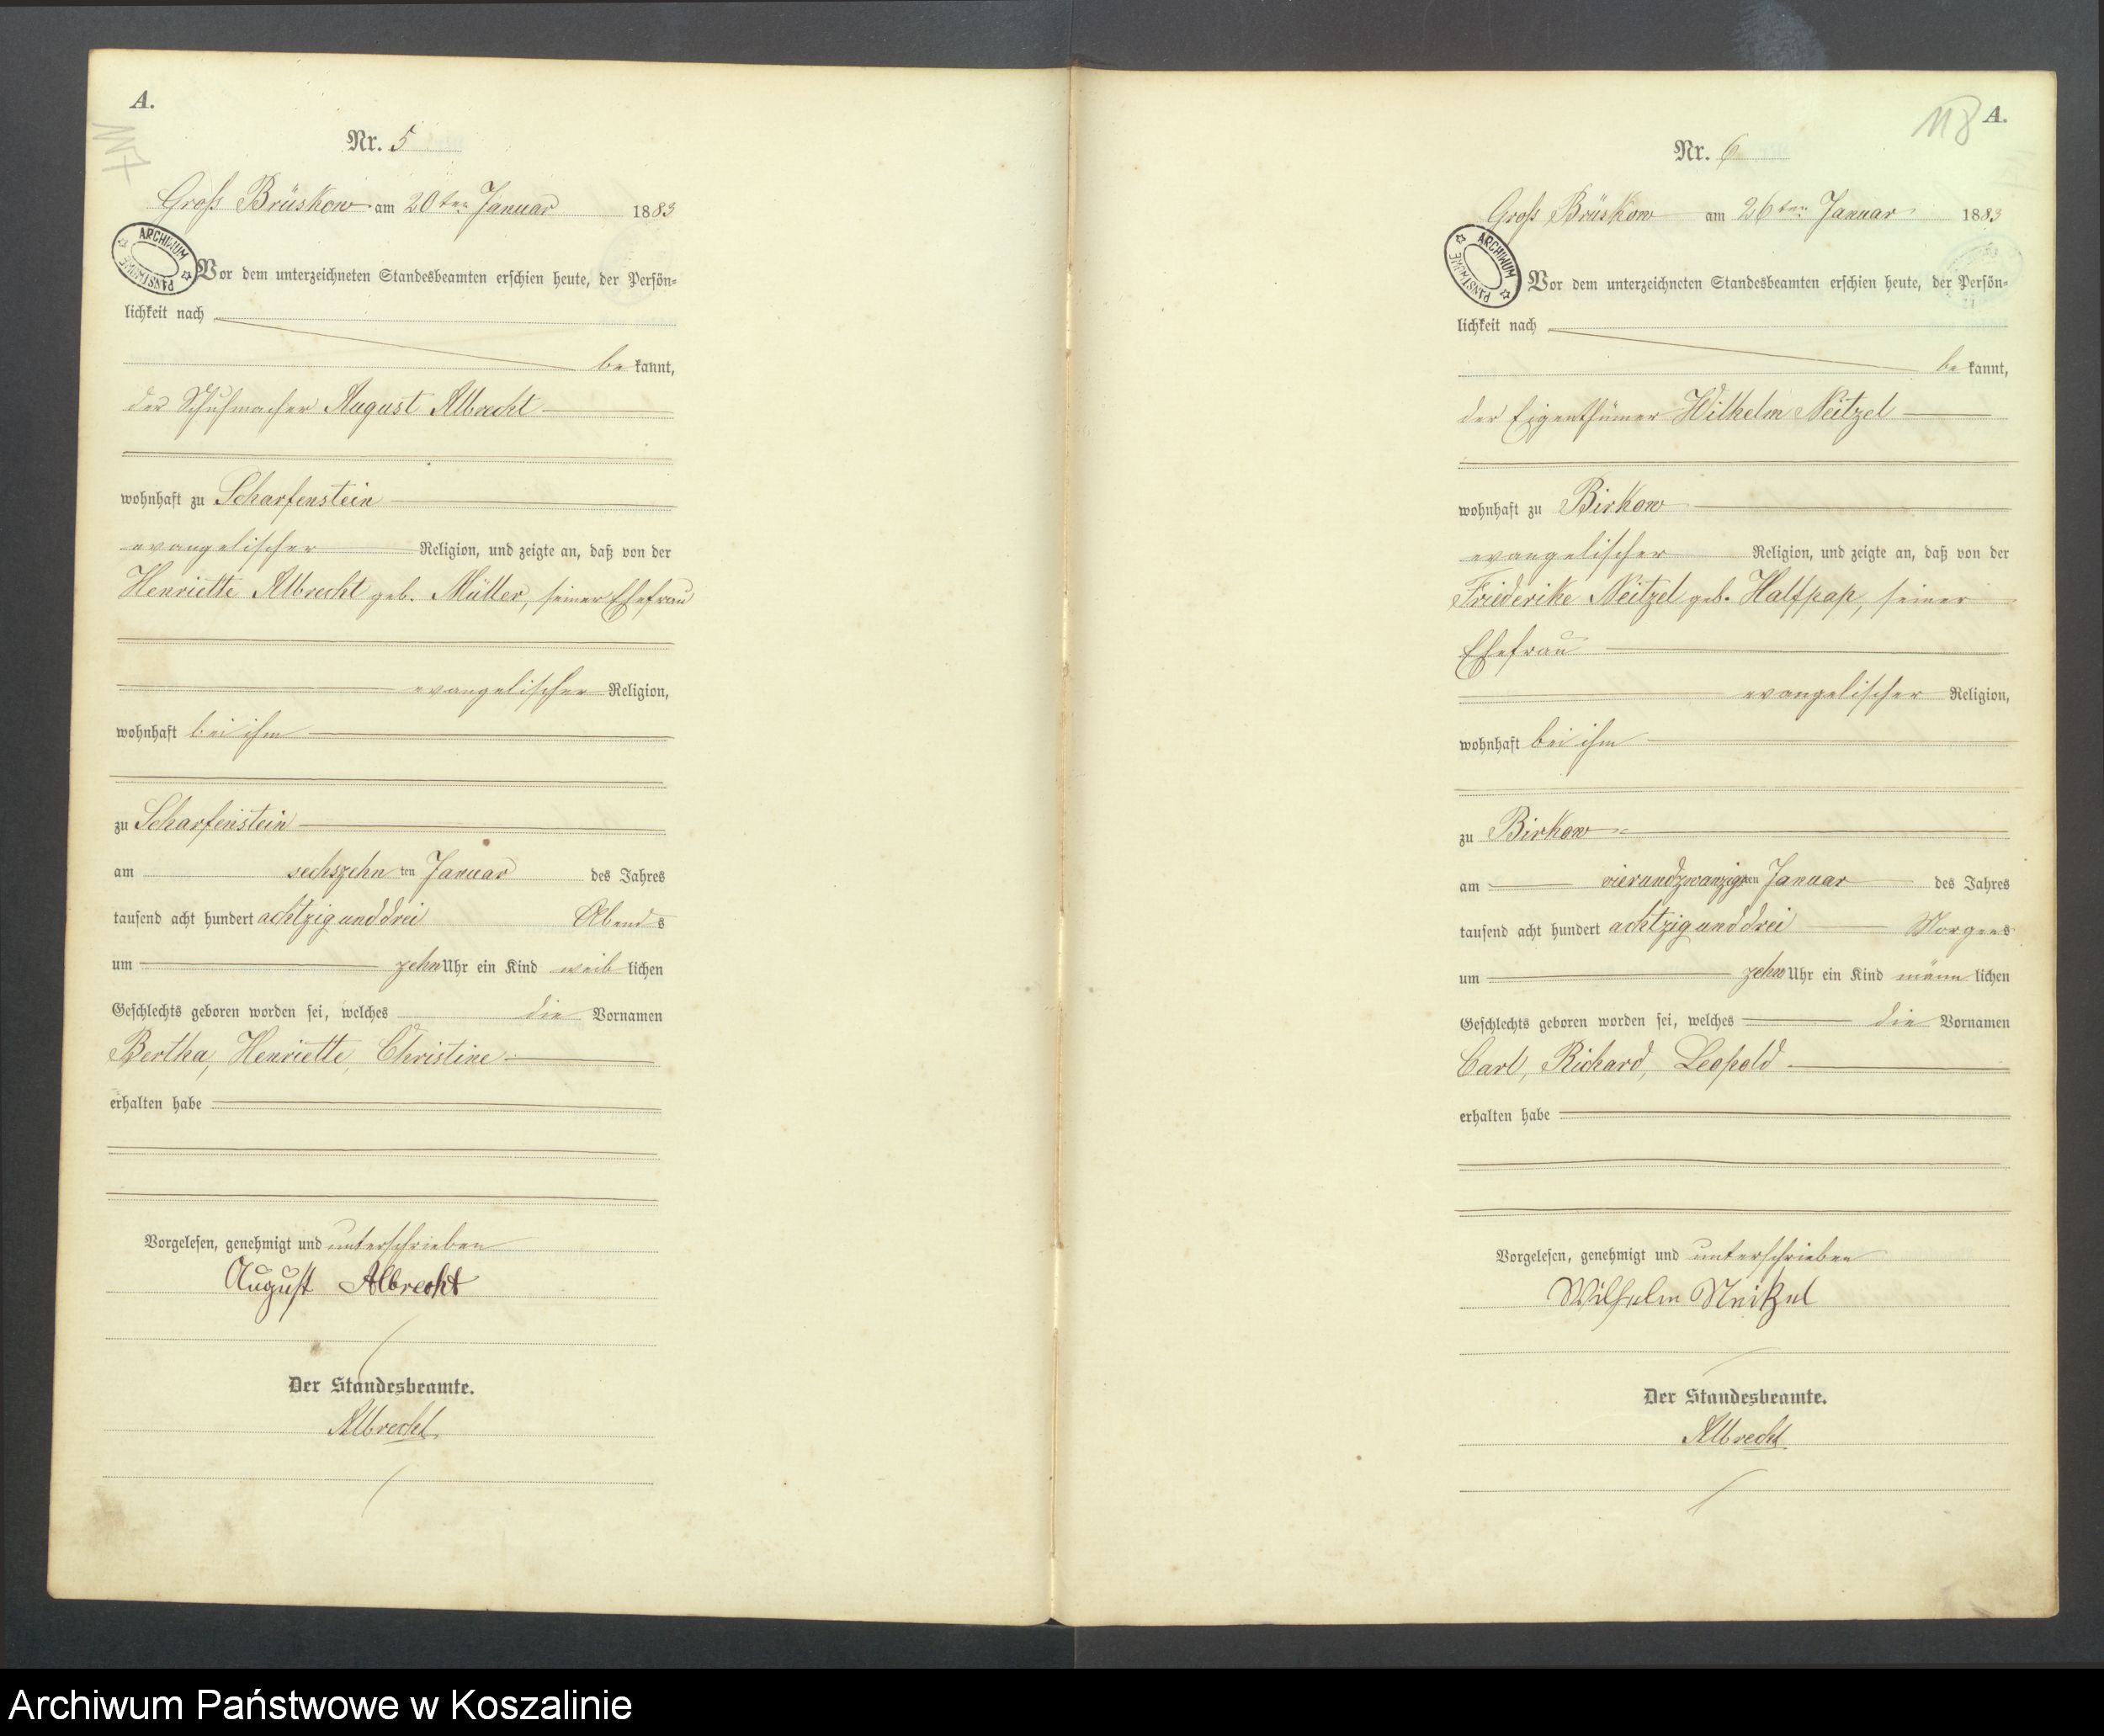 A.
117
Nr. 5
Groß Brüskow am 20ten Januar 1883
ARCHIWUM PAŃSTWOWE
Vor dem unterzeichneten Standesbeamten erschien heute, der Persön-
lichkeit nach
be kannt,
der Schuhmacher August Albrecht
wohnhaft zu Scharfenstein
evangelischer Religion, und zeigte an, daß von der
Henriette Albrecht geb. Müller, seiner Ehefrau
evangelischer Religion,
wohnhaft bei ihm
zu Scharfenstein
am sechszehn ten Januar des Jahres
tausend acht hundert achtzig und drei Abends
um zehn Uhr ein Kind weib lichen
Geschlechts geboren worden sei, welches die Vornamen
Bertha, Henriette, Christine
erhalten habe
Vorgelesen, genehmigt und unterschrieben
August Albrecht
Der Standesbeamte.
Albrecht
118
A.
Nr. 6
Groß Brüskow am 26ten Januar 1883
ARCHIWUM PAŃSTWOWE
Vor dem unterzeichneten Standesbeamten erschien heute, der Persön-
lichkeit nach
be kannt,
der Eigenthümer Wilhelm Neitzel
wohnhaft zu Birkow
evangelischer Religion, und zeigte an, daß von der
Friederike Neitzel geb. Halfpap, seiner
Ehefrau
evangelischer Religion,
wohnhaft bei ihm
zu Birkow
am vierundzwanzigsten Januar des Jahres
tausend acht hundert achtzig und drei Morgens
um zehn Uhr ein Kind männ lichen
Geschlechts geboren worden sei, welches die Vornamen
Carl, Richard, Leopold
erhalten habe
Vorgelesen, genehmigt und unterschrieben
Wilhelm Neitzel
Der Standesbeamte.
Albrecht
Archiwum Państwowe w Koszalinie